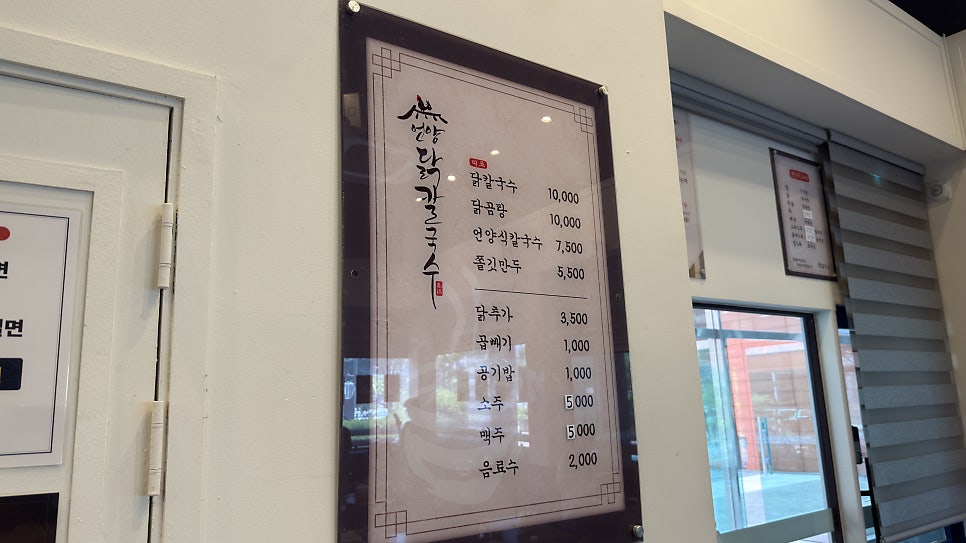 언양
닭칼국수
대표
닭칼국수 10,000
닭곰탕 10,000
언양식칼국수 7,500
쫄깃만두 5,500
닭추가 3,500
곱빼기 1,000
공기밥 1,000
소주 5000
맥주 5000
음료수 2,000
면